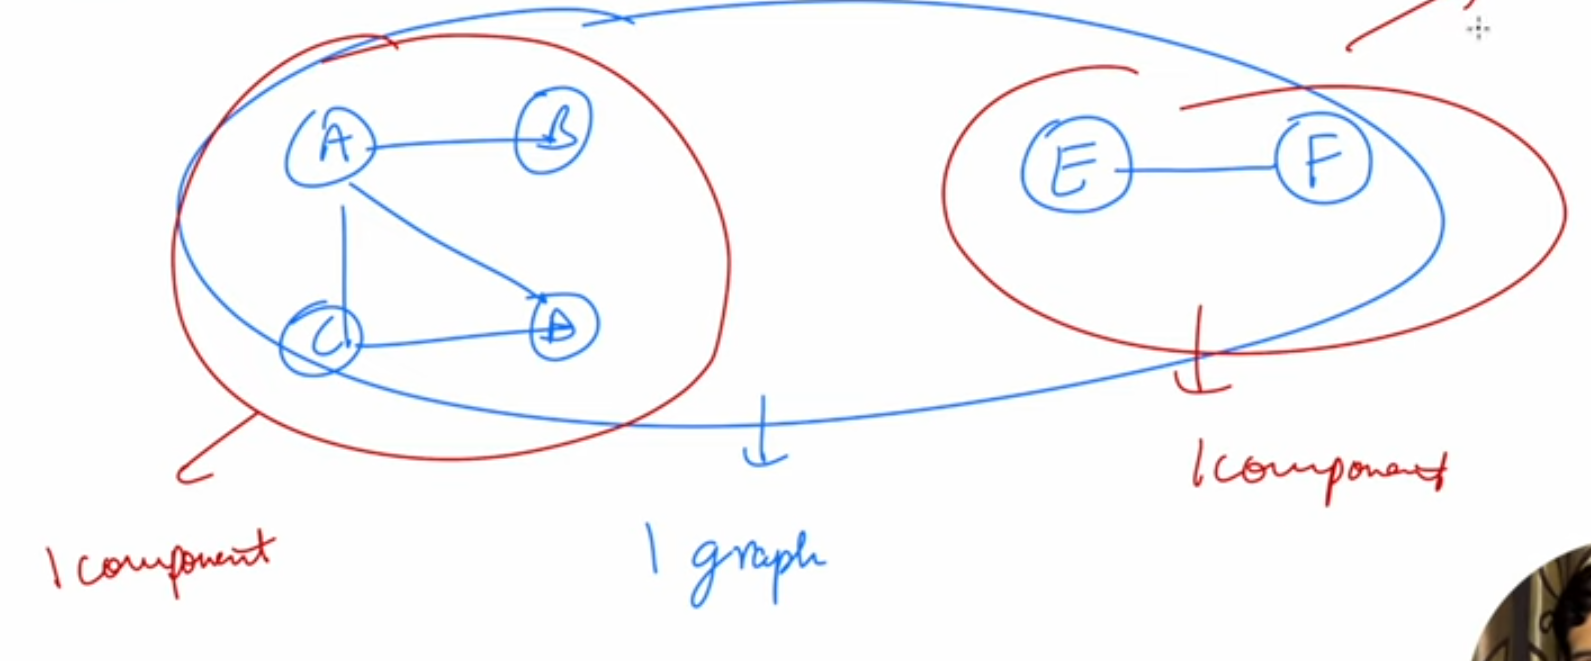 A B
E F
C D
1 component
1 graph
1 component